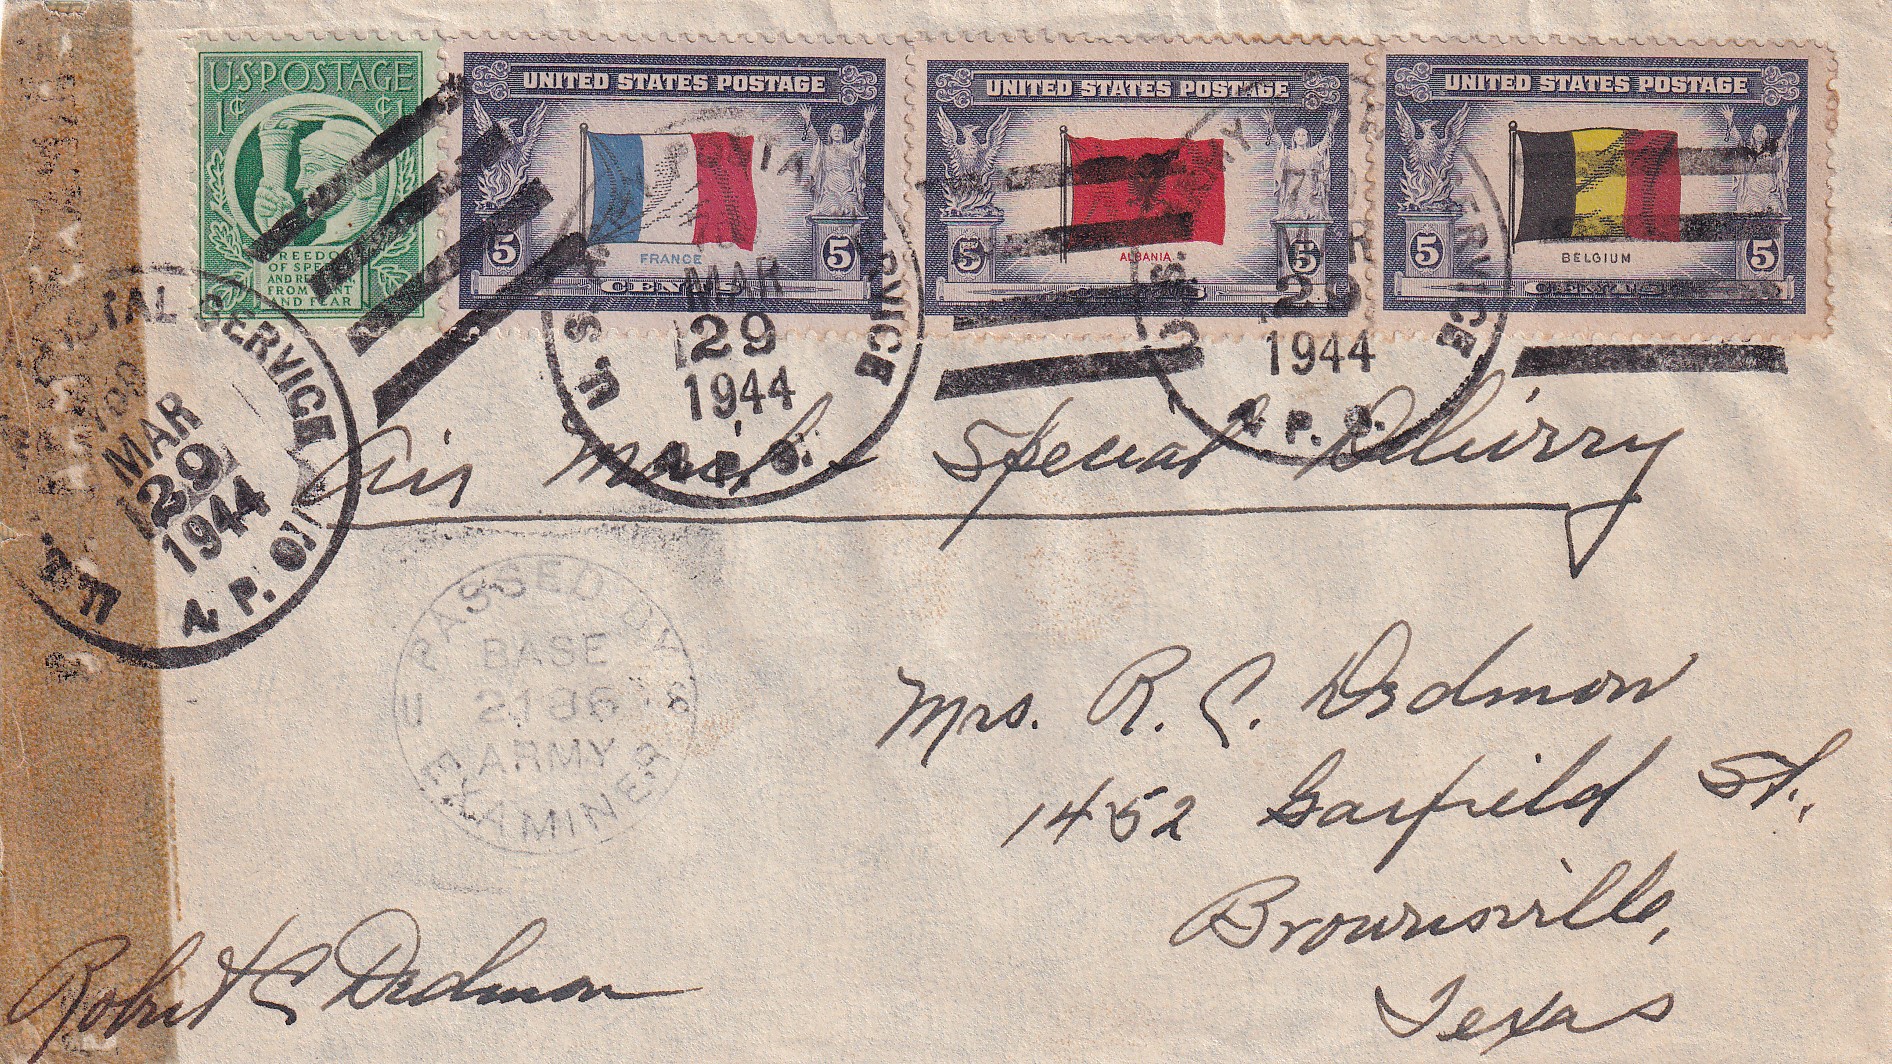 U·S·POSTAGE
1¢ ¢1
FREEDOM
OF SPEECH
AND RELIGION,
FROM WANT
AND FEAR
UNITED STATES POSTAGE
5 5
FRANCE
CENTS
UNITED STATES POSTAGE
5 5
ALBANIA
UNITED STATES POSTAGE
5 5
BELGIUM
POSTAL SERVICE
MAR
29
1944
A. P. O.
U. S. POSTAL SERVICE
MAR
29
1944
A. P. O.
U.S. ARMY SERVICE
MAR
29
1944
A. P. O.
Air Mail Special Delivery
PASSED BY
BASE
U 2186 S
ARMY
EXAMINER
Mrs. R. C. Dedmon
1452 Garfield St.,
Brownsville,
Texas
Robert C Dedmon